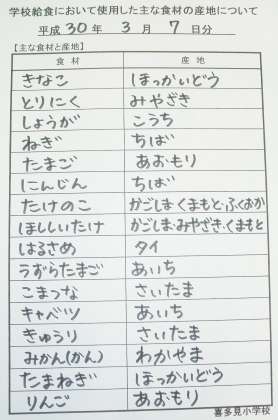 学校給食において使用した主な食材の産地について
平成 30 年 3 月 7 日分
【主な食材と産地】
食材 産地
きなこ ほっかいどう
とりにく みやざき
しょうが こうち
ねぎ ちば
たまご あおもり
にんじん ちば
たけのこ かごしま・くまもと・ふくおか
ほししいたけ かごしま・みやざき・くまもと
はるさめ タイ
うずらたまご あいち
こまつな さいたま
キャベツ あいち
きゅうり さいたま
みかん(かん) わかやま
たまねぎ ほっかいどう
りんご あおもり
喜多見小学校